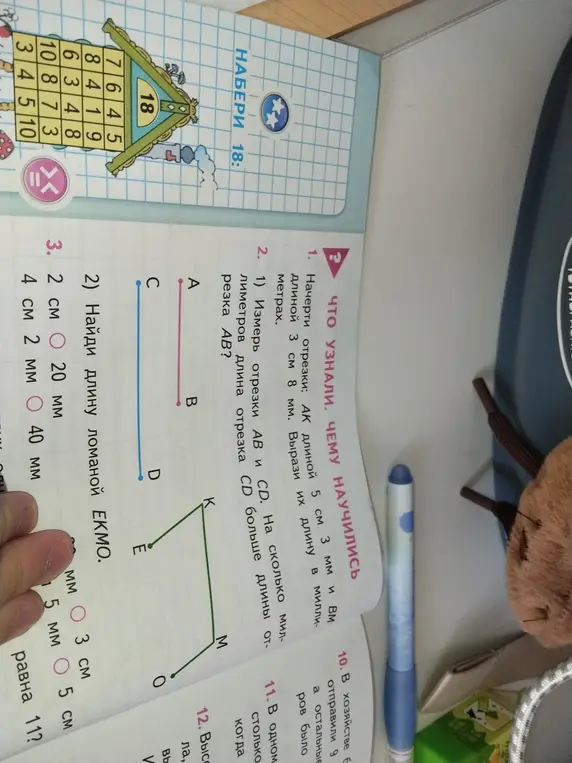 НАБЕРИ 18:
18
7 6 4 5
8 4 1 9
6 3 4 8
10 8 7 3
3 4 5 10
? ЧТО УЗНАЛИ. ЧЕМУ НАУЧИЛИСЬ
1. Начерти отрезки: АК длиной 5 см 3 мм и ВМ
длиной 3 см 8 мм. Вырази их длину в милли-
метрах.
2. 1) Измерь отрезки АВ и CD. На сколько мил-
лиметров длина отрезка CD больше длины от-
резка АВ?
A B
C D
K
E
M
O
2) Найди длину ломаной ЕКМО.
3. 2 см 20 мм
4 см 2 мм 40 мм
мм 3 см
5 мм 5 см
равна 11?
10. В хозяйстве
отправили 9
а остальные
ров было
11. В одном
столько
когда
12.